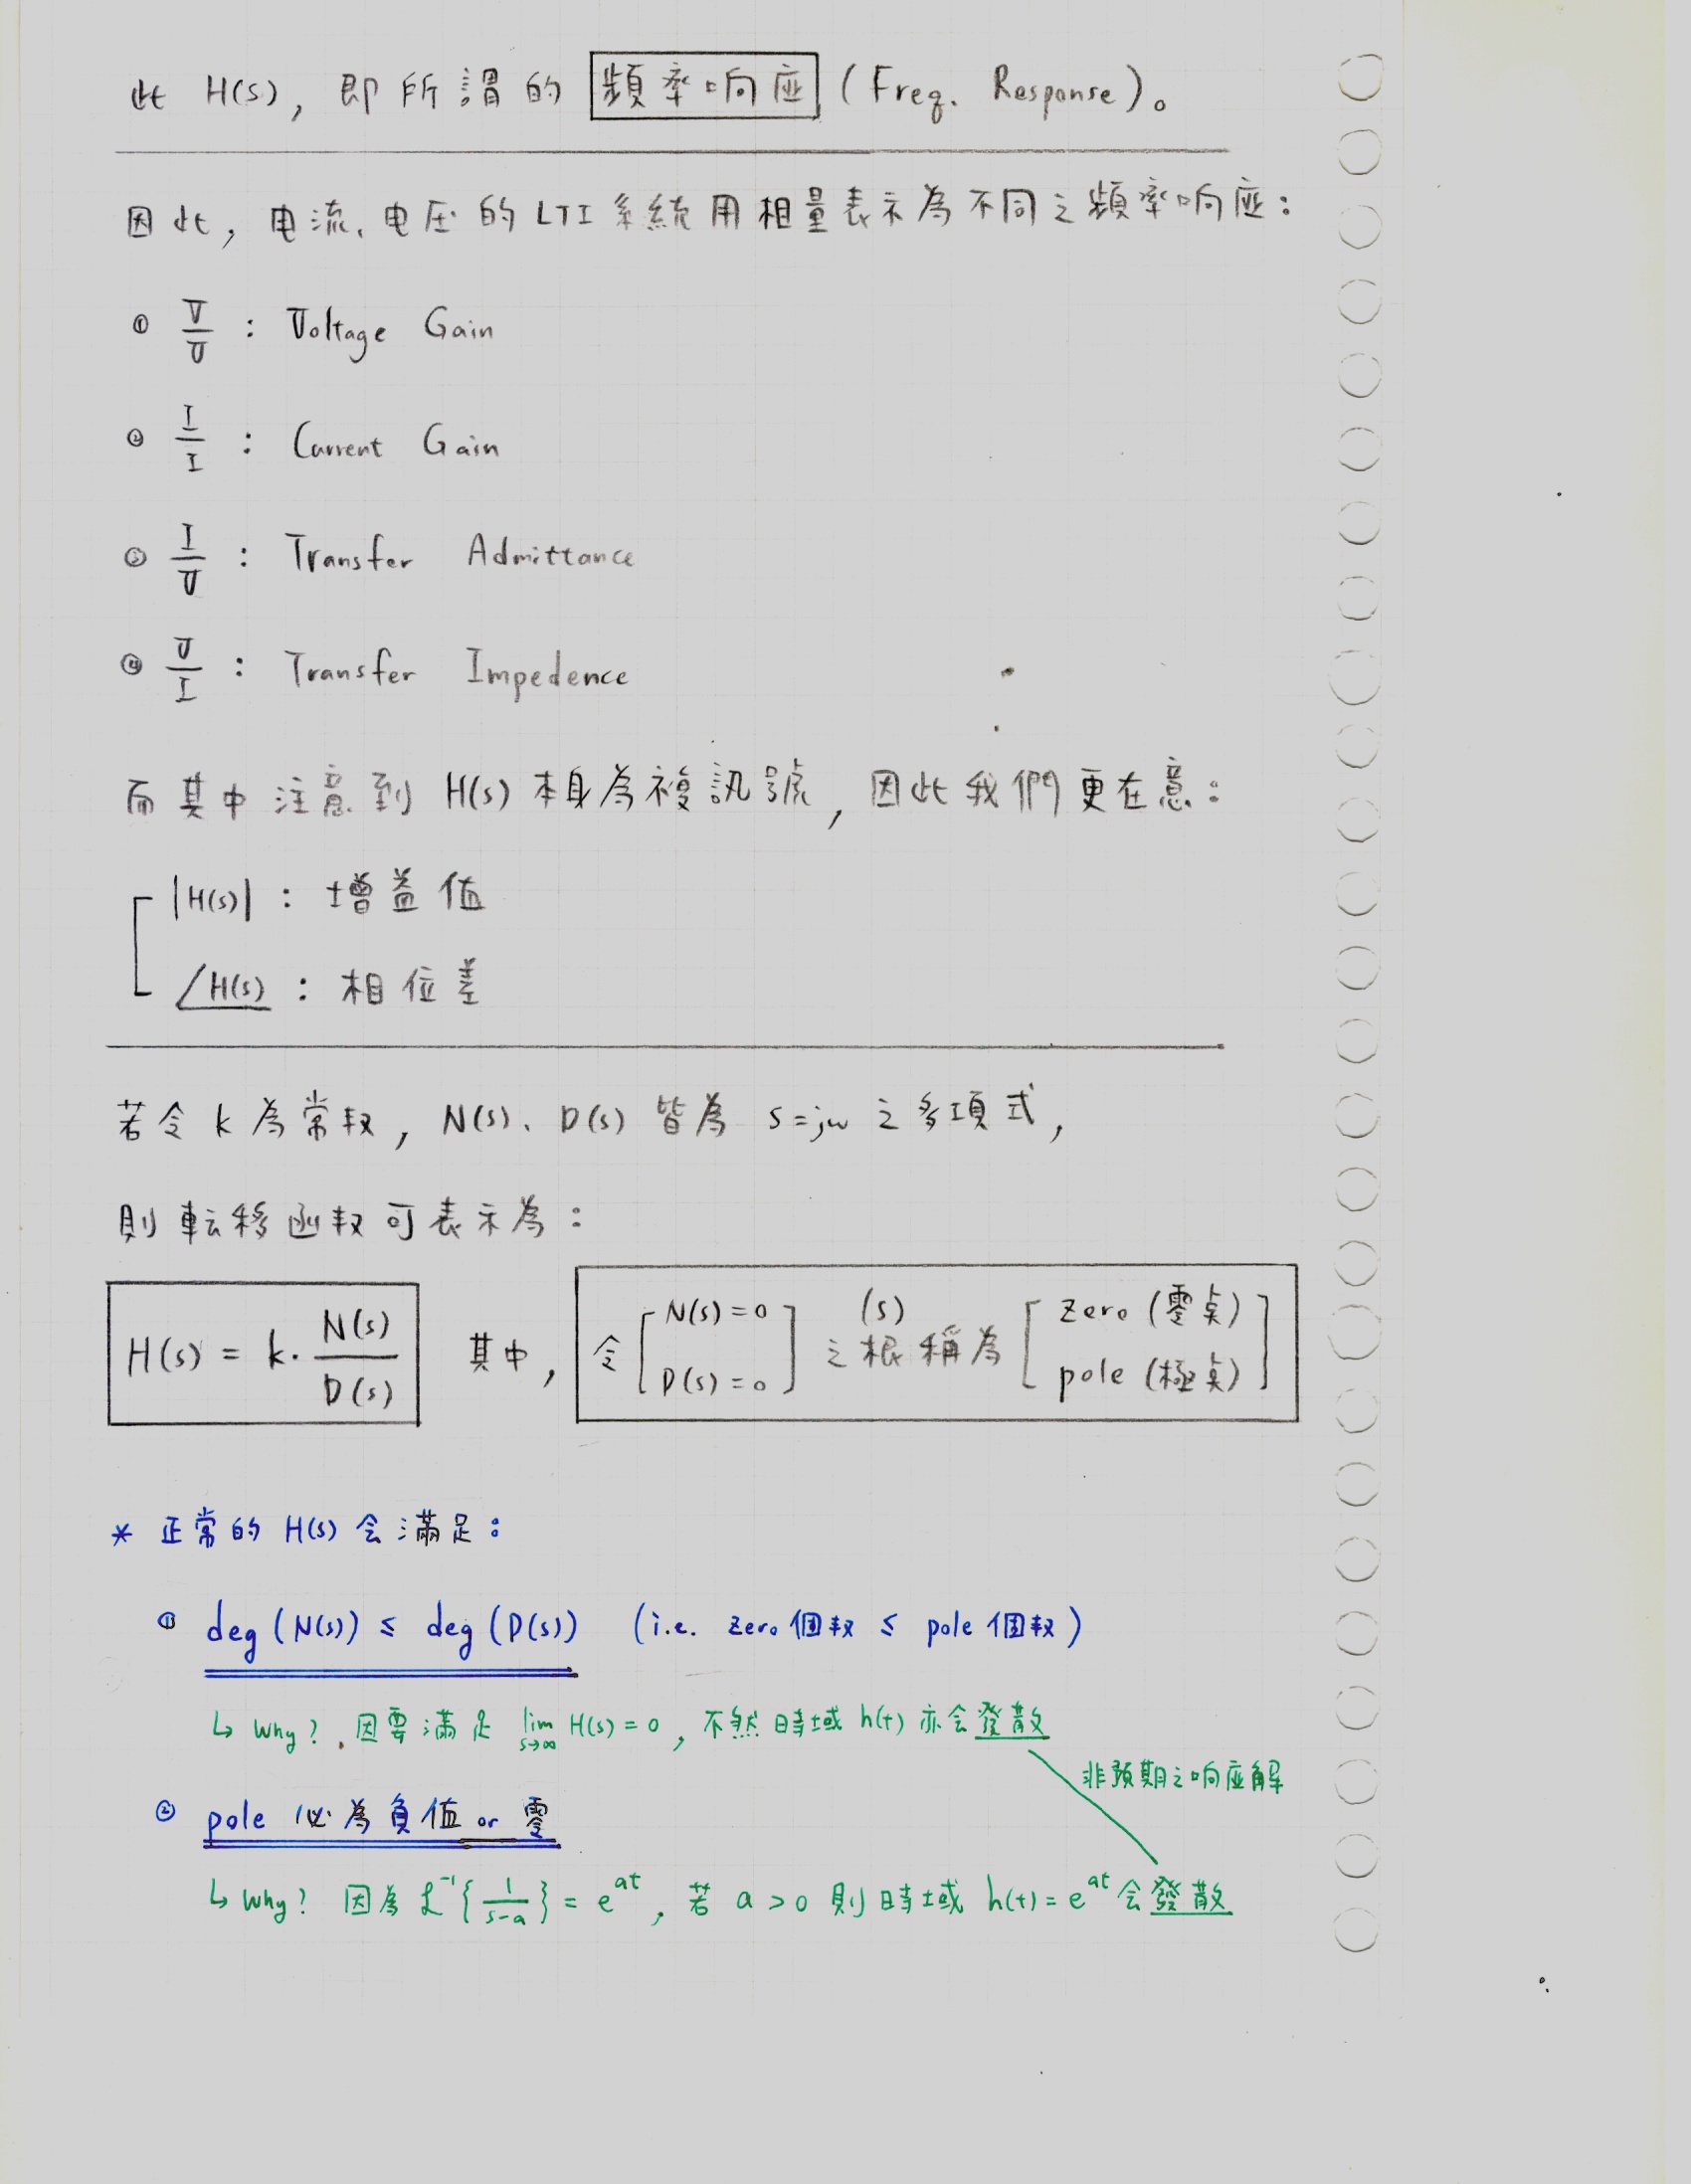 此 H(s), 即所謂的 頻率响应 (Freq. Response)。
因此, 电流、电压的 LTI 系統用相量表示為不同之頻率响应:
① V/V : Voltage Gain
② I/I : Current Gain
③ I/V : Transfer Admittance
④ V/I : Transfer Impedence
而其中注意到 H(s) 本身為複訊號, 因此我們更在意:
|H(s)| : 增益值
∠H(s) : 相位差
若令 k 為常数, N(s)、D(s) 皆為 s=jω 之多項式,
則転移函数可表示為:
H(s) = k · N(s)/D(s) 其中, 令 [N(s)=0 D(s)=0] (s)之根稱為 [zero (零点) pole (極点)]
* 正常的 H(s) 会滿足:
① deg (N(s)) ≤ deg (D(s)) (i.e. zero 個数 ≤ pole 個数)
↳ Why? 因要滿足 lim s→∞ H(s) = 0, 不然時域 h(t) 亦会發散
非預期之响应解
② pole 必為負值 or 零
↳ Why? 因為 ℒ⁻¹{1/(s-a)} = e^at, 若 a > 0 則時域 h(t) = e^at 会發散